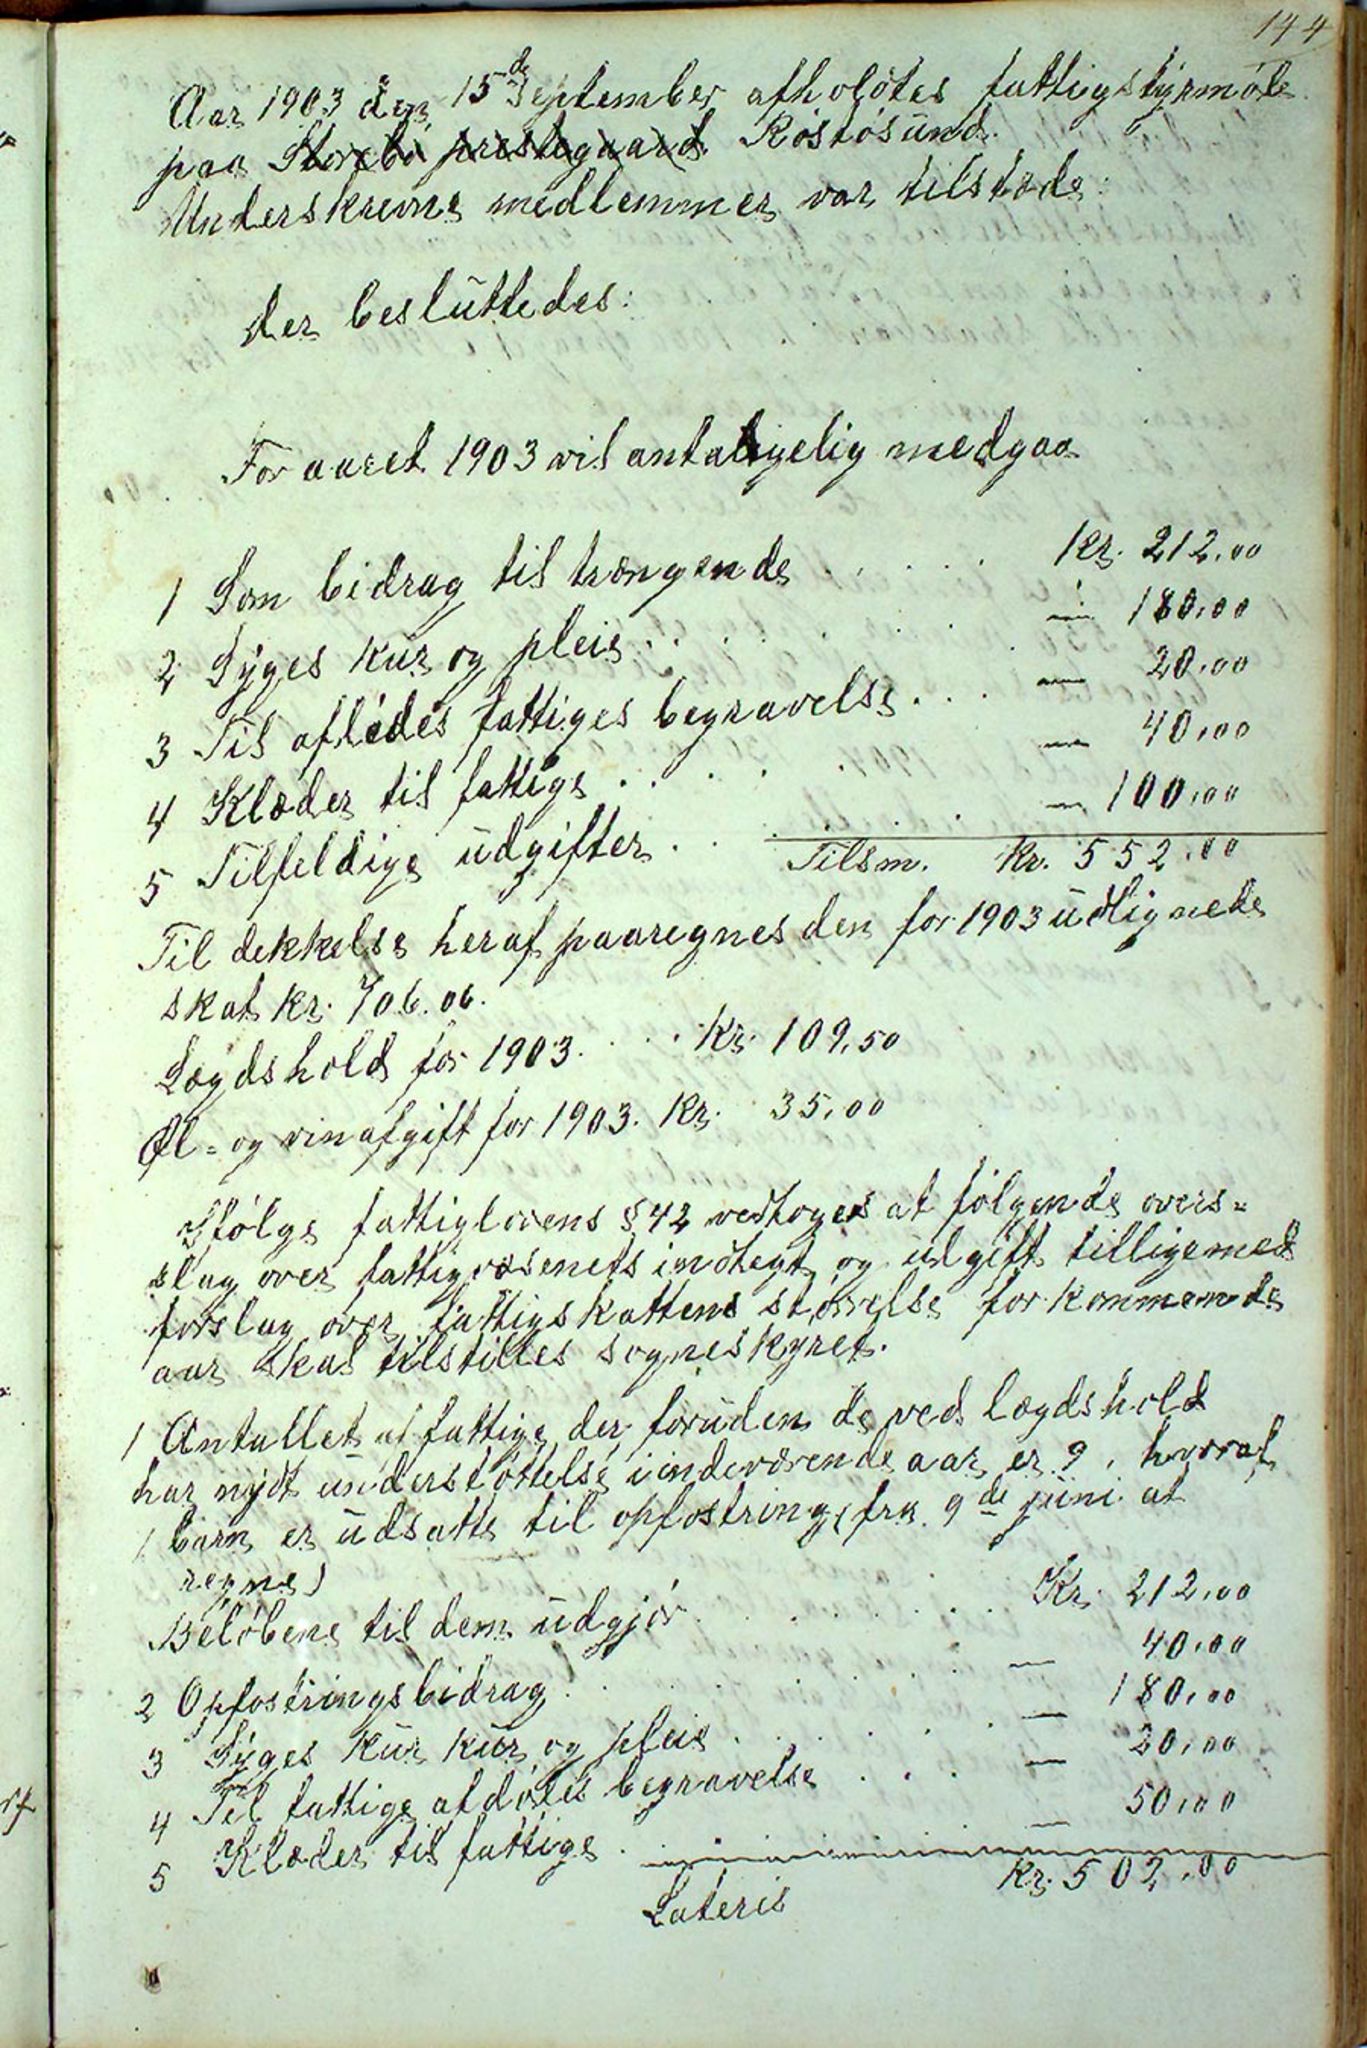 144
Aar 1903 den 15de September afholdtes fattigstyrmøte
paa Storebø prestegaard Rostøsund.
Underskrevne medlemmer var tilstede:
der besluttedes:
For aaret 1903 vil antagelig medgaa
1 Som bidrag til trængende . . . . . Kr. 212,00
2 Syges kur og pleie . . . . . . — 180,00
3 Til afdødes fattiges begravelse . . . — 20,00
4 Klæder til fattige . . . . . — 40,00
5 Tilfeldige udgifter . . . . . — 100,00
Tilsm. Kr. 552,00
Til dekkelse heraf paaregnes den for 1903 udlignede
skat kr. 706.06.
Lægdshold for 1903. . . . Kr. 109,50
Øl- og vinafgift for 1903. Kr. 35,00
Ifølge fattiglovens § 42 vedtoges at følgende overs=
slag over fattigvæsenets indtegt og udgift tilligemed
forslag over fattigskattens størrelse for kommende
aar skal tilstilles sogneskyret.
1 Antallet af fattige, der foruden de ved lægdshold
har nydt understøttelse i indeværende aar er 9, hvoraf
1 barn er udsatte til opfostring, (fra 9de juni at
regne)
Beløbene til dem udgjør . . . . . . Kr. 212,00
2 Opfostringsbidrag . . . . . . — 40,00
3 Syges kur kur og pleie . . . . . — 180,00
4 Til fattige afdødes begravelse . . . — 20,00
5 Klæder til fattige . — 50,00
Lateris Kr. 502,00